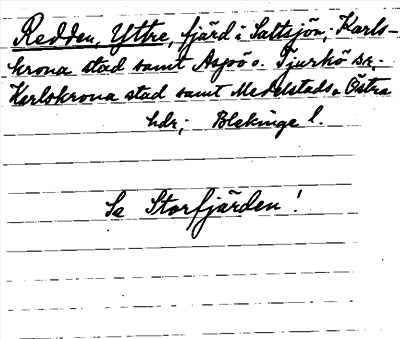 Redden, Yttre, fjärd i Saltsjön; Karls-
krona stad samt Aspö o. Tjurkö sr.
Karlskrona stad samt Medelstads o. Östra
hdr; Blekinge l.
Se Storfjärden!